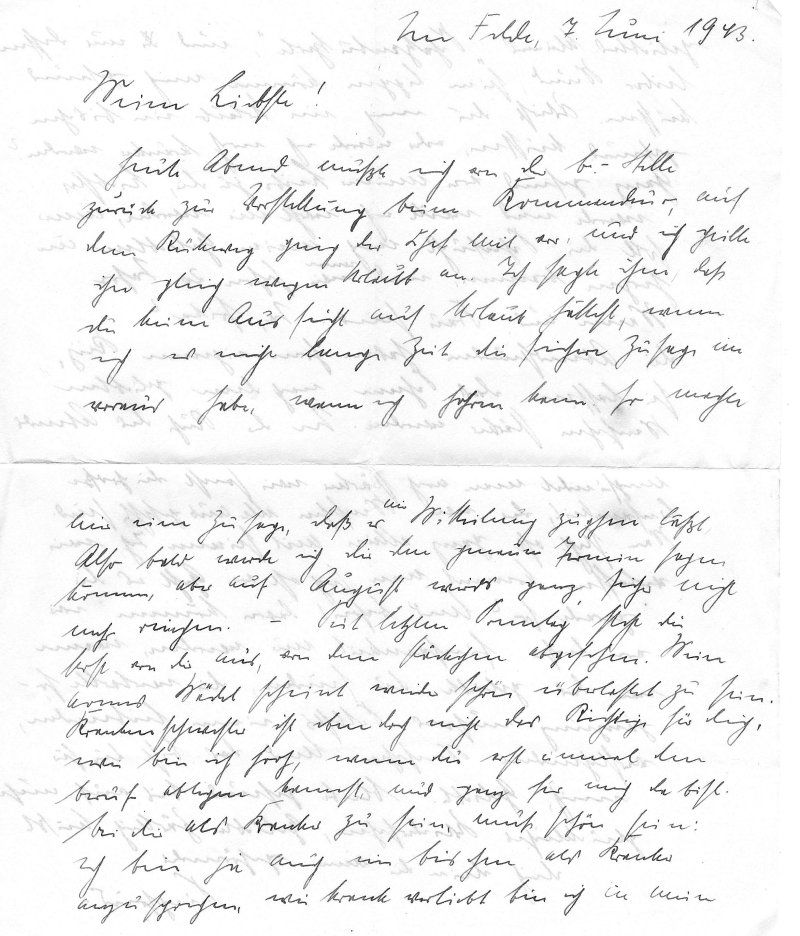 Im Felde, 7. Juni 1943.
Meine Liebste!
Heute Abend mußte ich von der b.-Stelle
zurück zur Vorstellung beim Kommandeur, auf
dem Rückweg ging der Chef mit vor. und ich hielt
ihn gleich wegen Urlaub an. Ich sagte ihm, daß
du keine Aussicht auf Urlaub hättest, wenn
ich es nicht lange Zeit die sichere Zusage im
voraus habe, wann ich fahren kann. Er machte
mir eine Zusage, daß er eine Mitteilung zugehen läßt.
Also bald werde ich dir den genauen Termin sagen
können, aber auf August wirds ganz sicher nicht
mehr reichen. – Seit letzten Sonntag steht die
Post von dir aus, von dem abgesehen. Mein
armes Mädel scheint wieder schön überlastet zu sein.
Krankenschwester ist eben doch nicht das Richtige für dich,
wie bin ich froh, wenn du erst einmal den
beruf ablegen kannst und ganz für mich da bist.
bei dir als Kranker zu sein, muß schön sein:
ich bin ja auch ein bischen als Kranker
anzusprechen, wie krank verliebt bin ich in mein